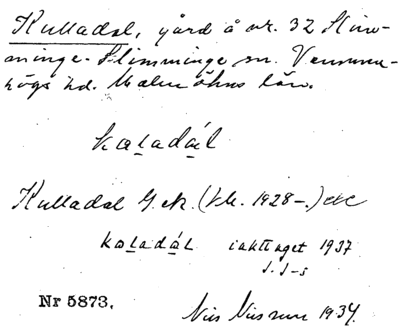 Kulladal, gård å nr. 32 Slim-
minge. Slimminge sn. Vemmen-
högs hd. Malmöhus län.
kɷladál
Kulladal G.ek. (bl. 1928–)
kɷladál iakttaget 1937
J.J-s
Nr 5873.
Nils Nilsson 1934.